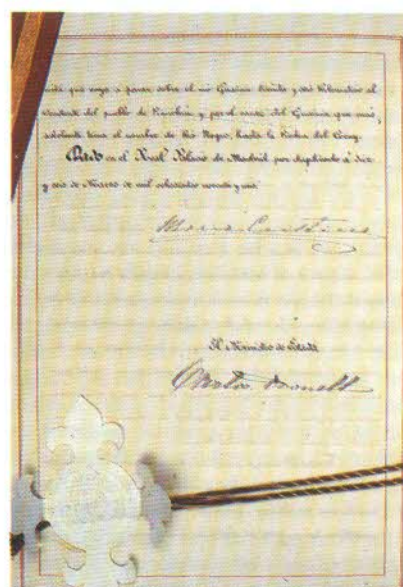 vida que vaya a parar sobre el rio Guainia treinta y seis kilometros al
occidente del pueblo de Pimichin y por el cauce del Guainia que mas
adelante toma el nombre de Rio Negro, hasta la Piedra del Cocuy.
Dado en el Real Palacio de Madrid por duplicado á diez
y seis de Marzo de mil ochocientos noventa y uno.
Maria Cristina
El Ministro de Estado